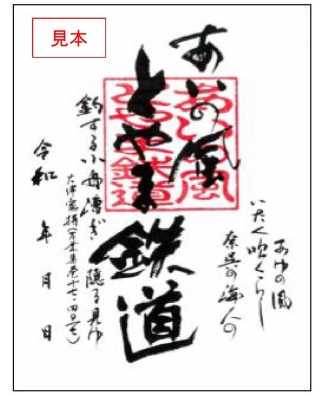 見本
あゆの風
いたく吹くらし
奈呉の海人の
あいの風
とやま鉄道
あいの風
とやま鉄道
釣する小舟漕ぎ隠る見ゆ
大伴家持(万葉集巻十七・四〇一七)
令和 年 月 日